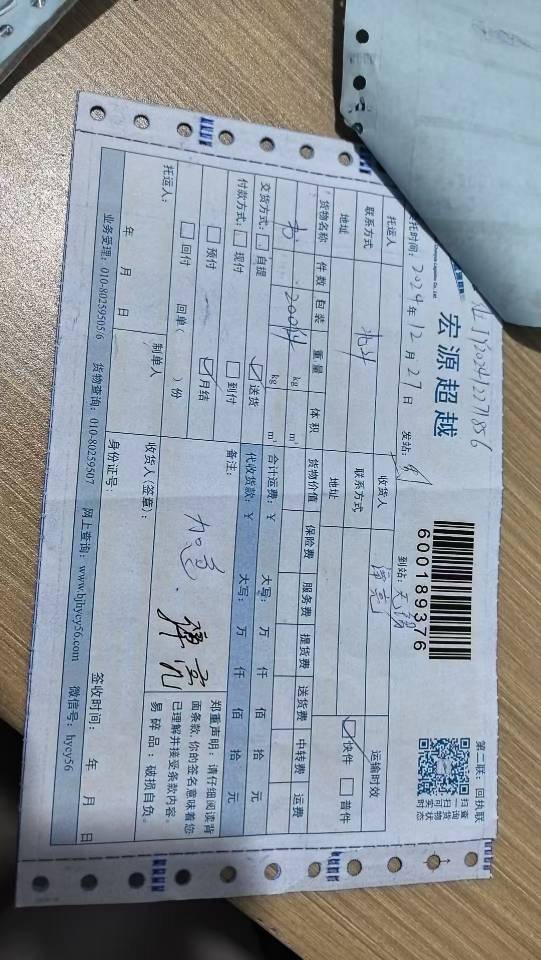 宏源超越
6001892376
第二联：回执联
扫查一询扫货可物实状时态
托时间：2024年12月27日 发站： 到站：无锡
托运人 收货人 谭亮 运输时效
联系方式 联系方式 ☑快件 □普件
地址 地址
货物名称 件数 包装 重量 体积 货物价值 保险费 服务费 提货费 送货费 中转费 运费
kg m³
交货方式：□自提 ☑送货 合计运费：¥ 大写： 万 仟 佰 拾 元
付款方式：□现付 □到付 代收货款：¥ 大写： 万 仟 佰 拾 元
□预付 ☑月结 备注： 加急
□回付 回单（ ）份
郑重声明：请仔细阅读背
面条款，你的签名意味着您
已理解并接受条款内容。
易碎品：破损自负。
托运人： 制单人 收货人(签章)： 谭亮
年 月 日 身份证号： 签收时间： 年 月 日
业务受理：010-80259505/6 货物查询：010-80259507 网上查询：www.bjhycy56.com 微信号：hycy56